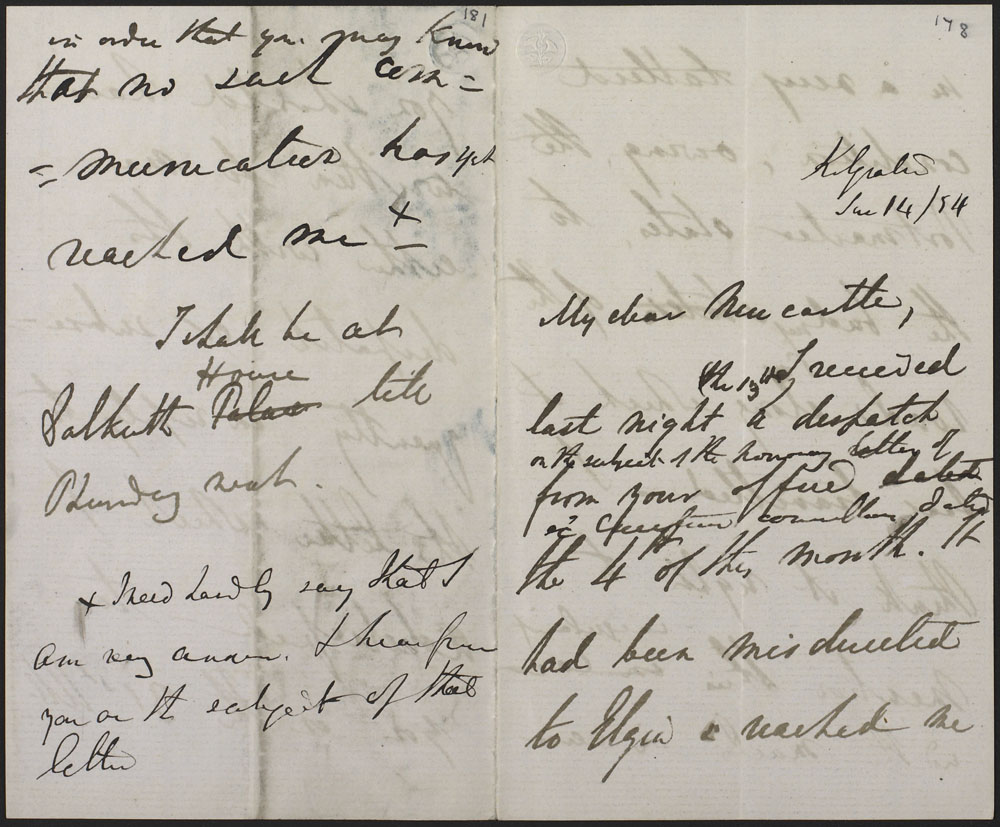 181
in order that you may know
that no such com=
=munication has yet
reached me +
I shall be at
House
Dalkeith Palace till
Thursday next.
+ I need hardly say that I
am very anxious to hear from
you on the subject of that
letter
178
Jan 14/54
My dear Newcastle,
the 13th I received
last night a despatch
on the subject of the honorary
from your office dated
Executive councillors dated
the 4 of this month. It
had been misdirected
to Elgin & reached me